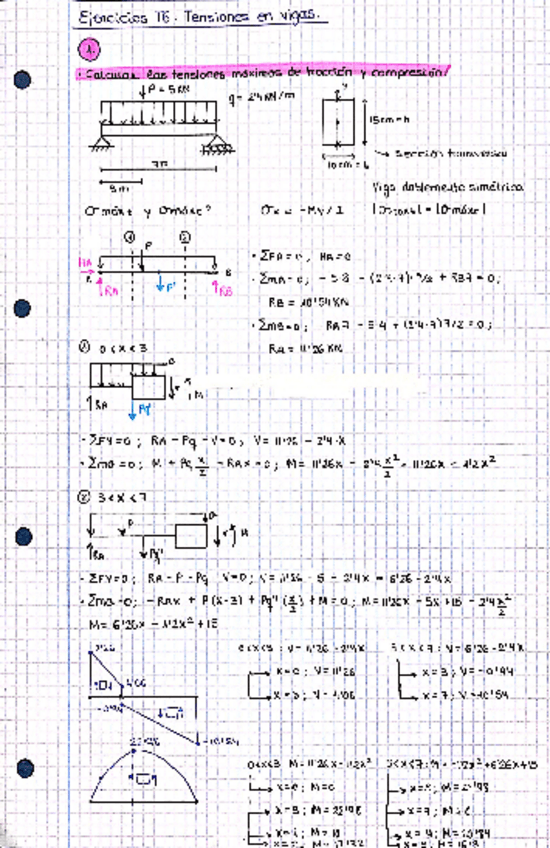 Ejercicios T6. Tensiones en vigas.
1.
· Calcular las tensiones máximas de tracción y compresión
P = 5 KN
q = 2'4 KN/m
15 cm = h
→ Sección transversal
10 cm = b
7m
3m
Viga doblemente simétrica
σmáxt y σmáxc?
σx = -My/I
|σmáxt| = |σmáxc|
① P ②
HA
A
B
RA
RB
· ΣFH=0; HA=0
· ΣMA=0; -5·3 - (2'4·7)·7/2 + RB7 = 0;
RB = 10'54 KN
· ΣMB=0; RA7 - 5·4 + (2'4·7)7/2 = 0;
RA = 11'26 KN
① 0<x<3
RA
M
· ΣFV=0; RA - Pq - V=0; V= 11'26 - 2'4·x
· ΣMO=0; M + Pq x/2 - RAx = 0; M= 11'26x - 2'4 x²/2 = 11'26x - 1'2x²
② 3<x<7
P
RA
M
· ΣFV=0; RA - P - Pq - V=0; V= 11'26 - 5 - 2'4x = 6'26 - 2'4x
· ΣMO=0; -RAx + P(x-3) + Pq (x/2) + M = 0; M= 11'26x - 5x + 15 - 2'4 x²/2
M= 6'26x - 1'2x² + 15
11'26
4'06
-0'94
-10'54
0<x<3: V= 11'26 - 2'4x
x=0; V= 11'26
x=3; V= 4'06
3<x<7: V= 6'26 - 2'4x
x=3; V= -0'94
x=7; V= -10'54
0<x<3 M= 11'26x - 1'2x²
x=0; M=0
x=3; M= 22'98
3<x<7: M= -1'2x² + 6'26x + 15
x=3; M= 22'98
x=7; M=